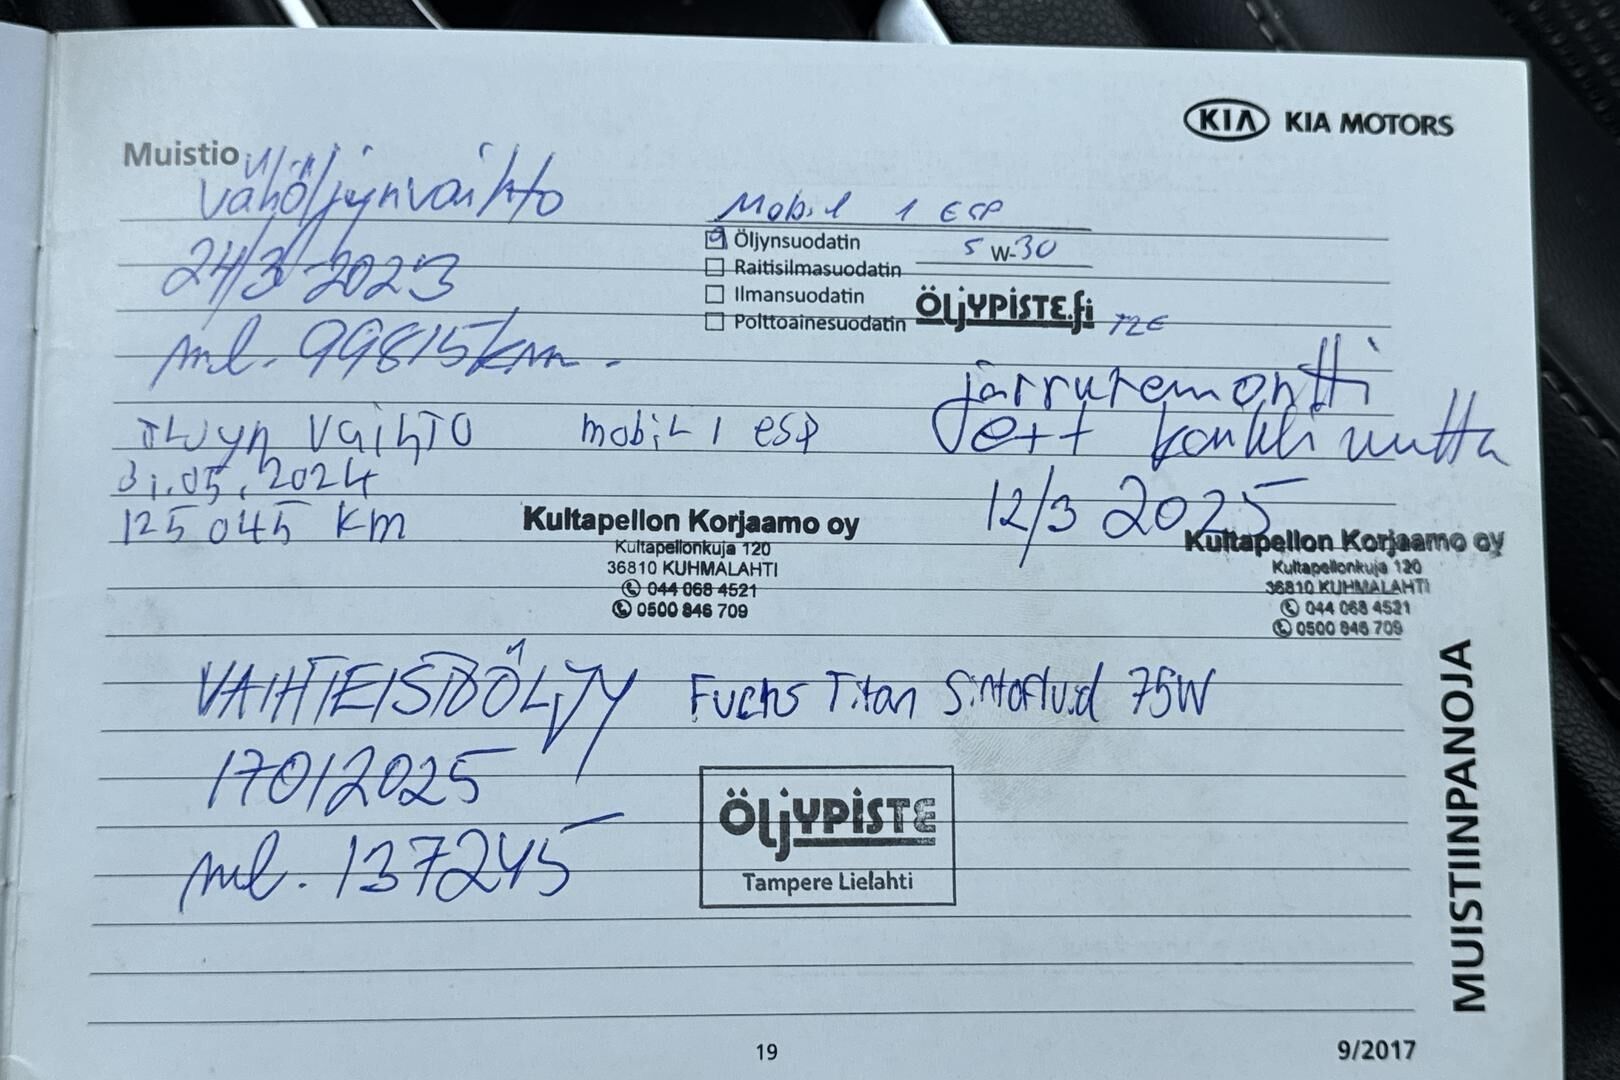 KIA KIA MOTORS
Muistio
Väliöljynvaihto
24/3-2023
ml. 99815km.
Mobil 1 ESP
Öljynsuodatin 5 W-30
Raitisilmasuodatin
Ilmansuodatin
Polttoainesuodatin
ÖLJYPISTE.fi 72€
ÖLJYN VAIHTO mobiL 1 esp
31.05.2024
125 045 km
Kultapellon Korjaamo oy
Kultapellonkuja 120
36810 KUHMALAHTI
044 068 4521
0500 846 709
jarruremontti
ett kaikki uutta
12/3 2025
Kultapellon Korjaamo oy
Kultapellonkuja 120
36810 KUHMALAHTI
044 068 4521
0500 846 709
VAIHTEISTOÖLJY Fuchs Titan Sintofluid 75W
17012025
ml. 137245
ÖLJYPISTE
Tampere Lielahti
MUISTIINPANOJA
19
9/2017